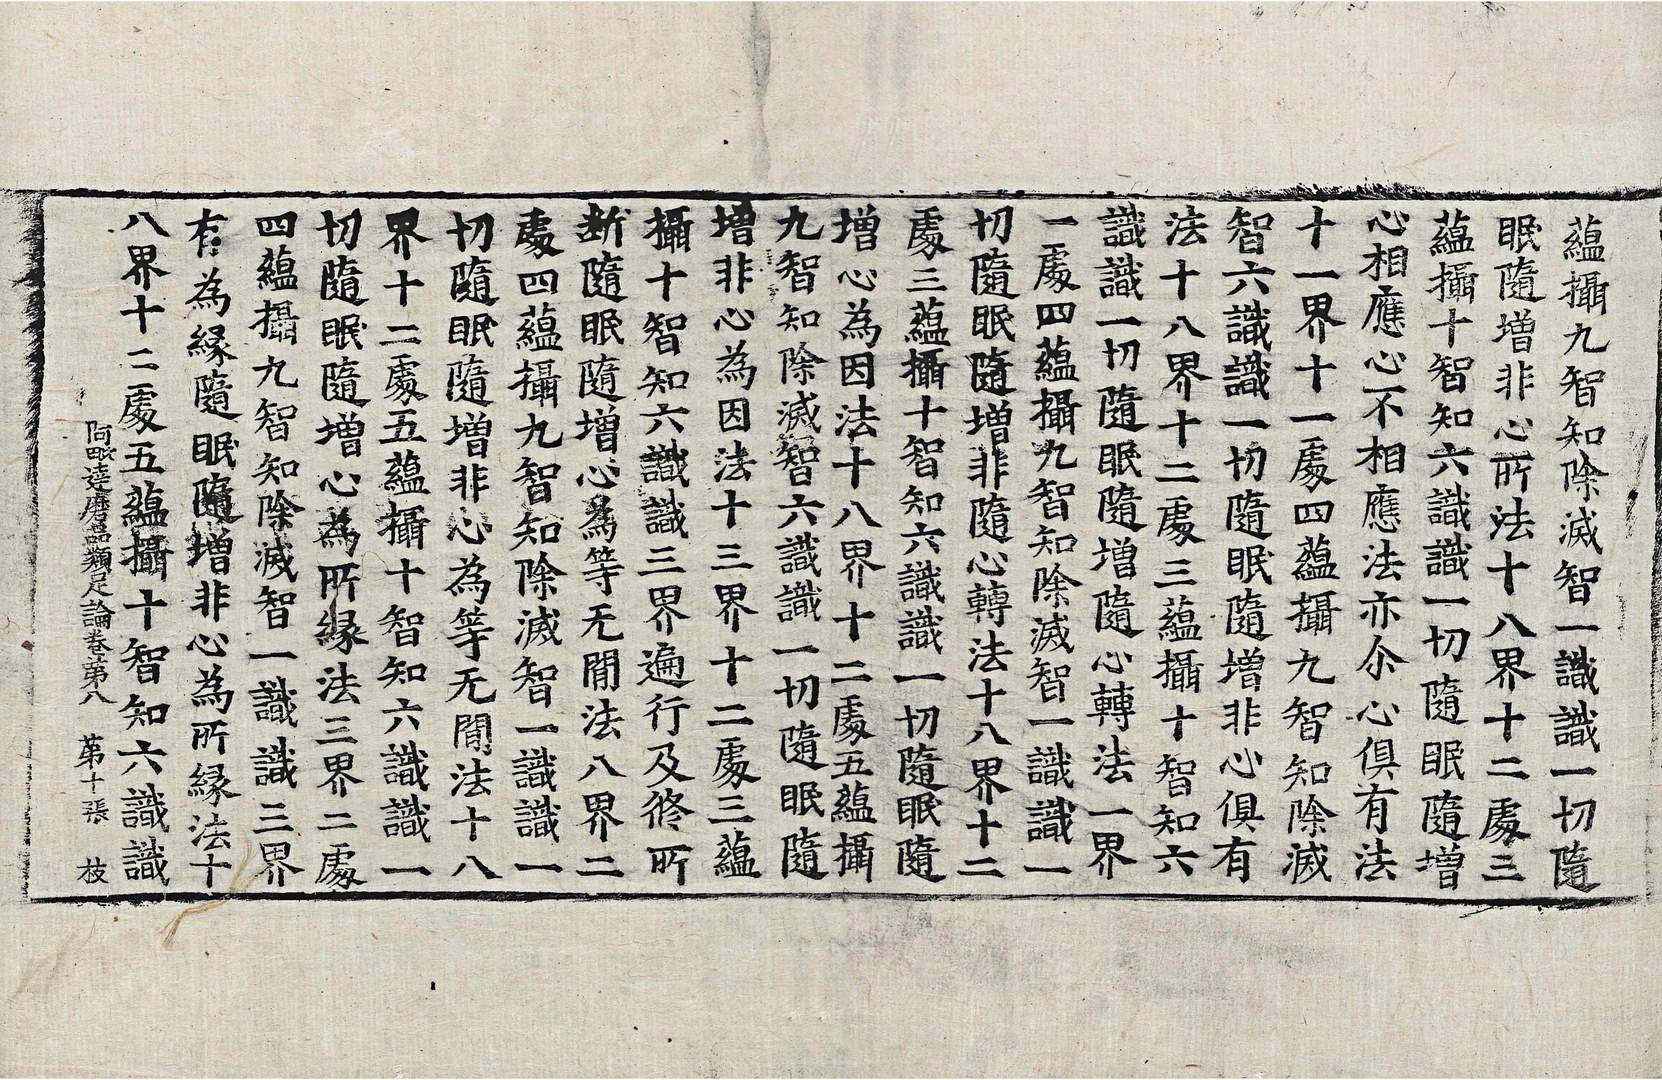 蘊攝九智知除滅智一識識一切隨
眠隨增非心所法十八界十二處三
蘊攝十智知六識識一切隨眠隨增
心相應心不相應法亦尒心俱有法
十一界十一處四蘊攝九智知除滅
智六識識一切隨眠隨增非心俱有
法十八界十二處三蘊攝十智知六
識識一切隨眠隨增隨心轉法一界
一處四蘊攝九智知除滅智一識識一
切隨眠隨增非隨心轉法十八界十二
處三蘊攝十智知六識識一切隨眠隨
增心為因法十八界十二處五蘊攝
九智知除滅智六識識一切隨眠隨
增非心為因法十三界十二處三蘊
攝十智知六識識三界遍行及修所
斷隨眠隨增心為等无間法八界二
處四蘊攝九智知除滅智一識識一
切隨眠隨增非心為等无間法十八
界十二處五蘊攝十智知六識識一
切隨眠隨增心為所緣法三界二處
四蘊攝九智知除滅智一識識三界
有為緣隨眠隨增非心為所緣法十
八界十二處五蘊攝十智知六識識
阿毗達磨品類足論卷第八 第十張 枝